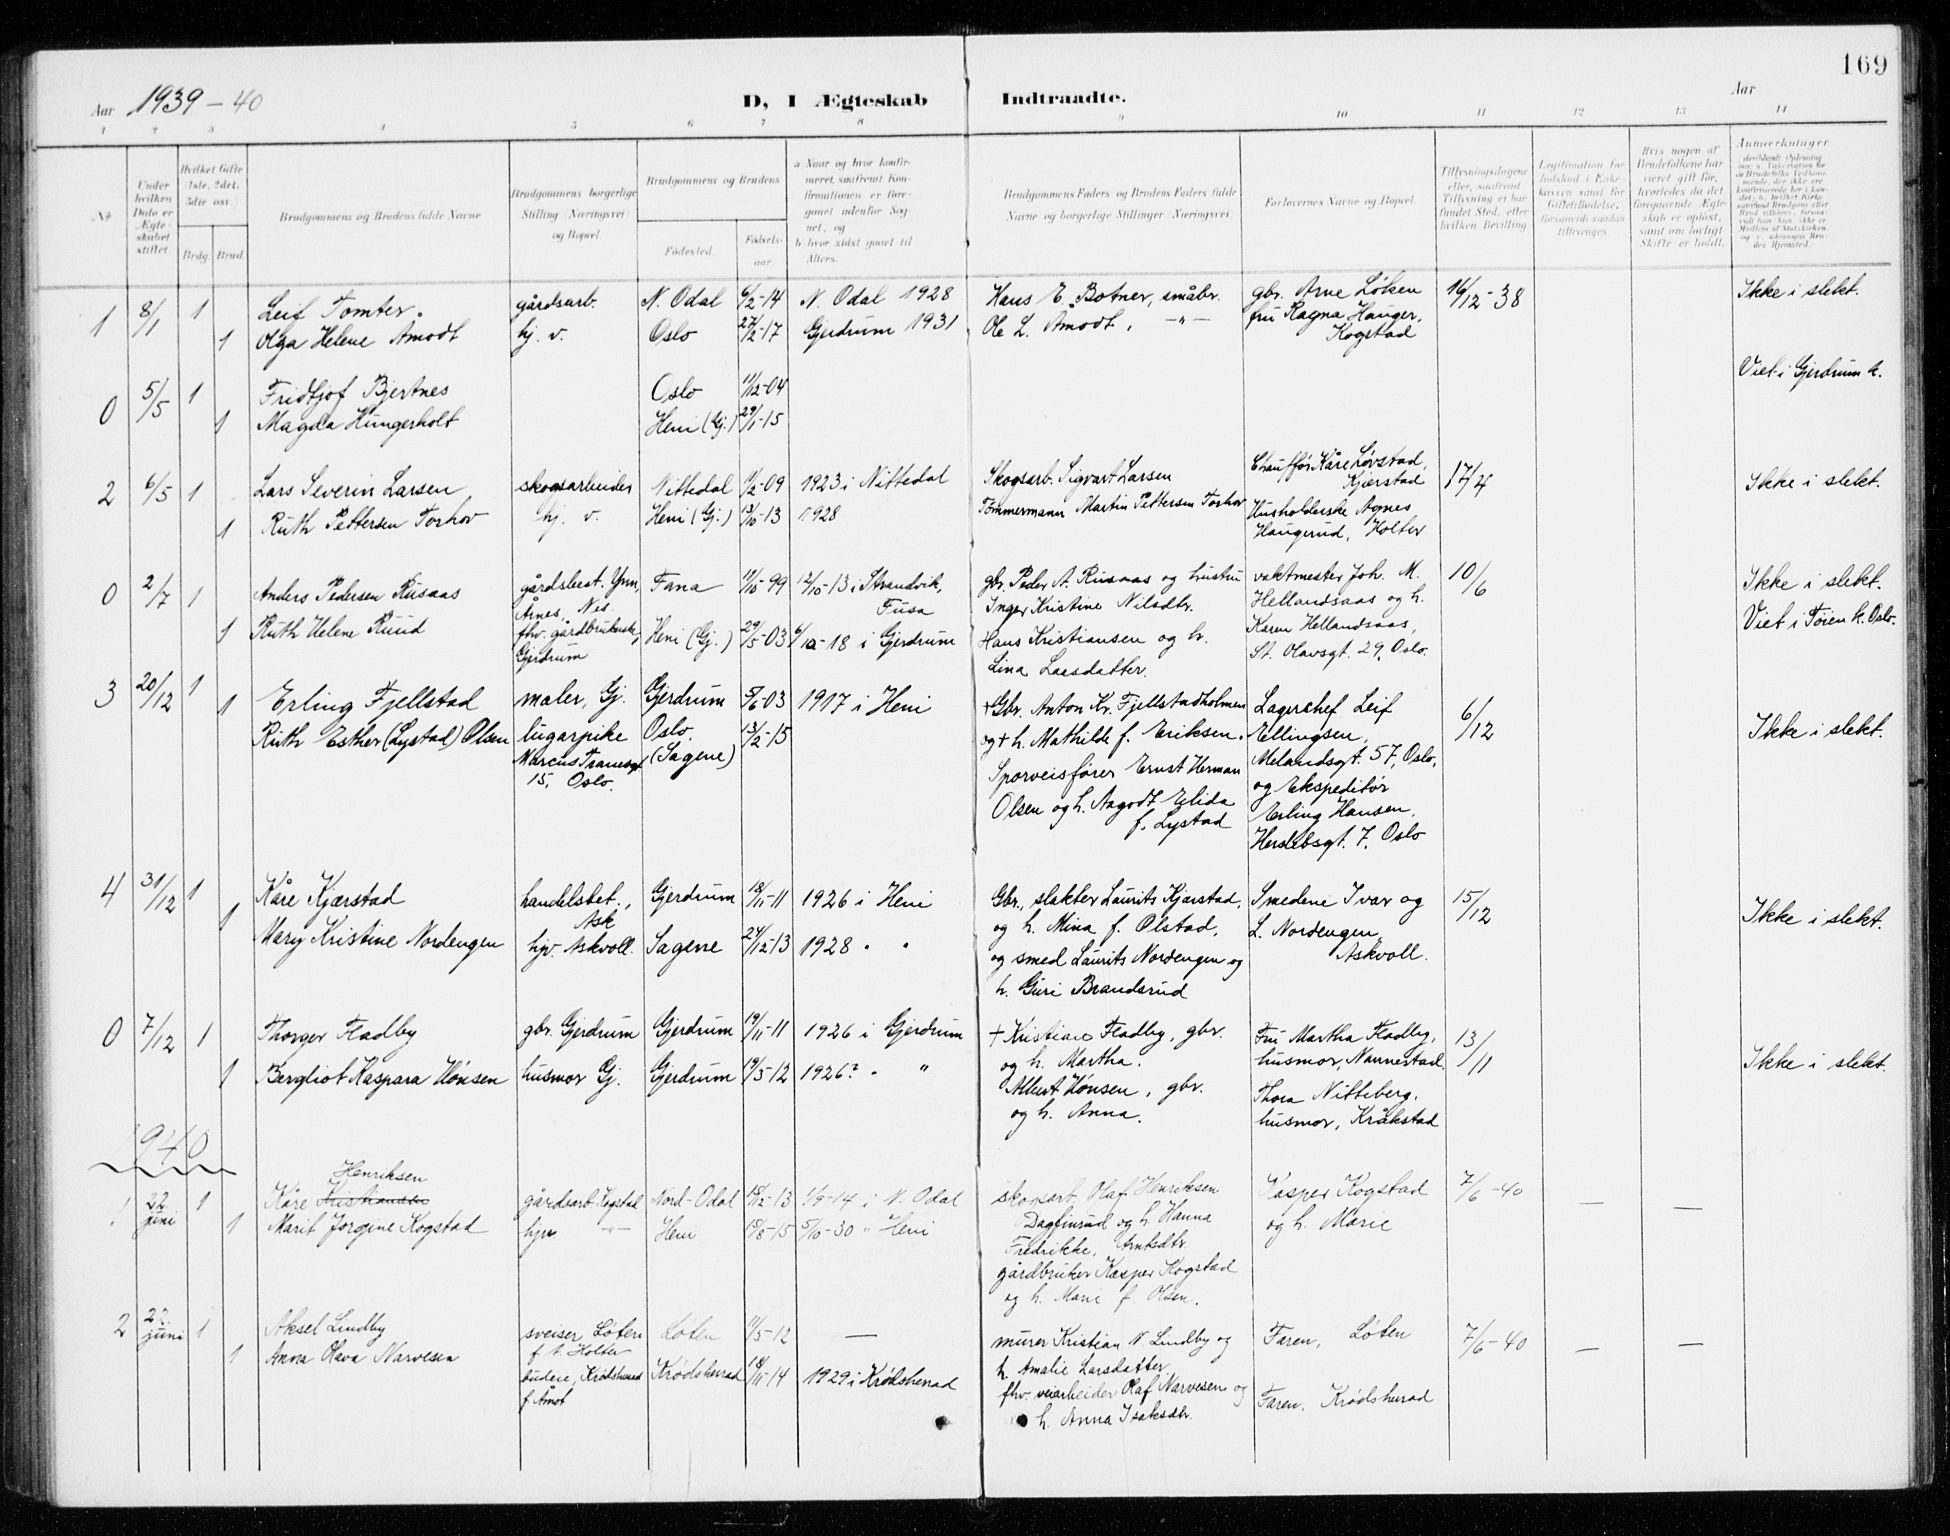 169
Aar 1939 - 40
D, I Ægteskab Indtraadte.
Aar
1 2 3 4 5 6 7 8 9 10 11 12 13 14
№
Under hvilken Dato er Ægteskabet stiftet.
Hvilket Gifte (1ste, 2det, 3die osv.)
Brdg. Brud.
Brudgommens og Brudens fulde Navne
Brudgommens borgerlige Stilling (Næringsvei) og Bopæl.
Brudgommens og Brudens
Fødested. Fødselsaar.
a. Naar og hvor konfirmeret, saafremt Konfirmationen er foregaaet udenfor Sognet, og
b. hvor sidst gaaet til Alters.
Brudgommens Faders og Brudens Faders fulde Navne og borgerlige Stillinger (Næringsvei).
Forlovernes Navne og Bopæl.
Tillysningsdagene eller, saafremt Tillysning ei har fundet Sted, efter hvilken Bevilling
Legitimation for Indskud i Enkekassen samt for Giftetilladelse, forsaavidt saadan tiltrænges.
Hvis nogen af Brudefolkene har været gift før, hvorledes da det foregaaende Ægteskab er opløst, samt om lovligt Skifte er holdt.
Anmærkninger
1 8/1 1 Leif Tomter. gårdsarb. N. Odal 6/2-14 N. Odal 1928 Hans E. Botner, småbr. gbr. Arne Løken 16/12-38 Ikke i slekt.
1 Olga Helene Amodt hj. v. Oslo 27/2-17 Gjerdrum 1931 Ole L. Amodt, -"- fru Ragna Hauger,
Kogstad
0 5/5 1 Fridtjof Bjertnes Oslo 11/12-04 Viet i Gjerdrum k.
1 Magda Hungerholt Heni (Gj.) 29/1-15
2 6/5 1 Lars Severin Larsen skogsarbeider Nittedal 11/2-09 1923 i Nittedal Skogsarb. Sigvart Larsen Chauffør Kåre Løvstad, Kjærstad 17/4 Ikke i slekt.
1 Ruth Pettersen Torhov hj. v. Heni (Gj.) 13/10-13 1928 Tømmermann Martin Pettersen Torhov Husholderske Agnes
Haugerud, Holter
0 2/7 1 Anders Pedersen Rusaas gårdsbest. Ynn, Årnes, Nes. Fana 11/10-99 12/10-13 i Strandvik, Fusa gbr. Peder A. Rusaas og hustru Inger Kristine Nilsdtr. vaktmester Joh. M. Hellandsaas og h. 10/6 Ikke i slekt.
Viet i Tøien k. Oslo.
1 Ruth Helene Ruud fhv. gårdbrukerske, Gjerdrum Heni (Gj.) 29/5-03 6/10-18 i Gjerdrum Hans Kristiansen og h. Lina Larsdatter. Karen Hellandsaas, St. Olavsgt. 29, Oslo.
3 20/12 1 Erling Fjellstad maler, Gj. Gjerdrum 5/6-03 1917 i Heni + Gbr. Anton Kr. Fjellstadholmen og + h. Mathilde f. Eriksen. Lagerchef Leif Ellingsen, 6/12 Ikke i slekt.
1 Ruth Esther (Lystad) Olsen lugarpike Marcus Tranesgt 15, Oslo. Oslo. (Sagene) 13/2-15 Sporveisfører Ernst Herman Olsen og h. Aagodt Elida f. Lystad Melandsgt. 57, Oslo, og Ekspeditør Erling Hansen, Herslebsgt. 7, Oslo
4 31/12 1 Kåre Kjærstad handelsbet., Ask Gjerdrum 18/11-11 1926 i Heni Gbr., slakter Laurits Kjærstad, og h. Mina f. Olstad, Smedene Ivar og 15/12 Ikke i slekt.
1 Mary Kristine Nordengen hjv. Askvoll. Sagene 24/12-13 1928 " " og smed Laurits Nordengen og h. Guri Brandsrud L. Nordengen, Askvoll.
0 7/12 1 Thorger Fladby gbr. Gjerdrum Gjerdrum 19/11-11 1926 i Gjerdrum + Kristian Fladby, gbr. og h. Martha. Fru Martha Fladby, husmor, Nannestad. 13/11 Ikke i slekt.
1 Bergliot Kaspara Hønsen husmor Gj. Gjerdrum 19/5-12 1926? " " Albert Hønsen, gbr. og h. Anna. Thora Nitteberg, husmor, Kråkstad
1940
1 22 juni 1 Kåre Henriksen gårdsarb. Kogstad Nord-Odal 15/12-13 1/9-14 i N. Odal skogsarb. Olaf Henriksen Dagfinrud og h. Hanna Fredrikke, Arntsdtr. Kasper Kogstad og h. Marie 7/6-40 — —
1 Marit Jorgine Kogstad hjv -"- Heni 15/8-15 5/10-30 " Heni gårdbruker Kasper Kogstad og h. Marie f. Olsen.
2 22. juni 1 Aksel Lindby sveiser Løten f. t. Holter Løten 11/5-12 — murer Kristian N. Lindby og h. Amalie Larsdatter Faren, Løten 7/6-40 — —
1 Anna Olava Narvesen budeie, Krødsherad f. Åmot Krødsherad 18/11-14 1929 i Krødsherad fhv. veiarbeider Olaf Narvesen og h. Anna Isaksdtr. Faren, Krødsherad